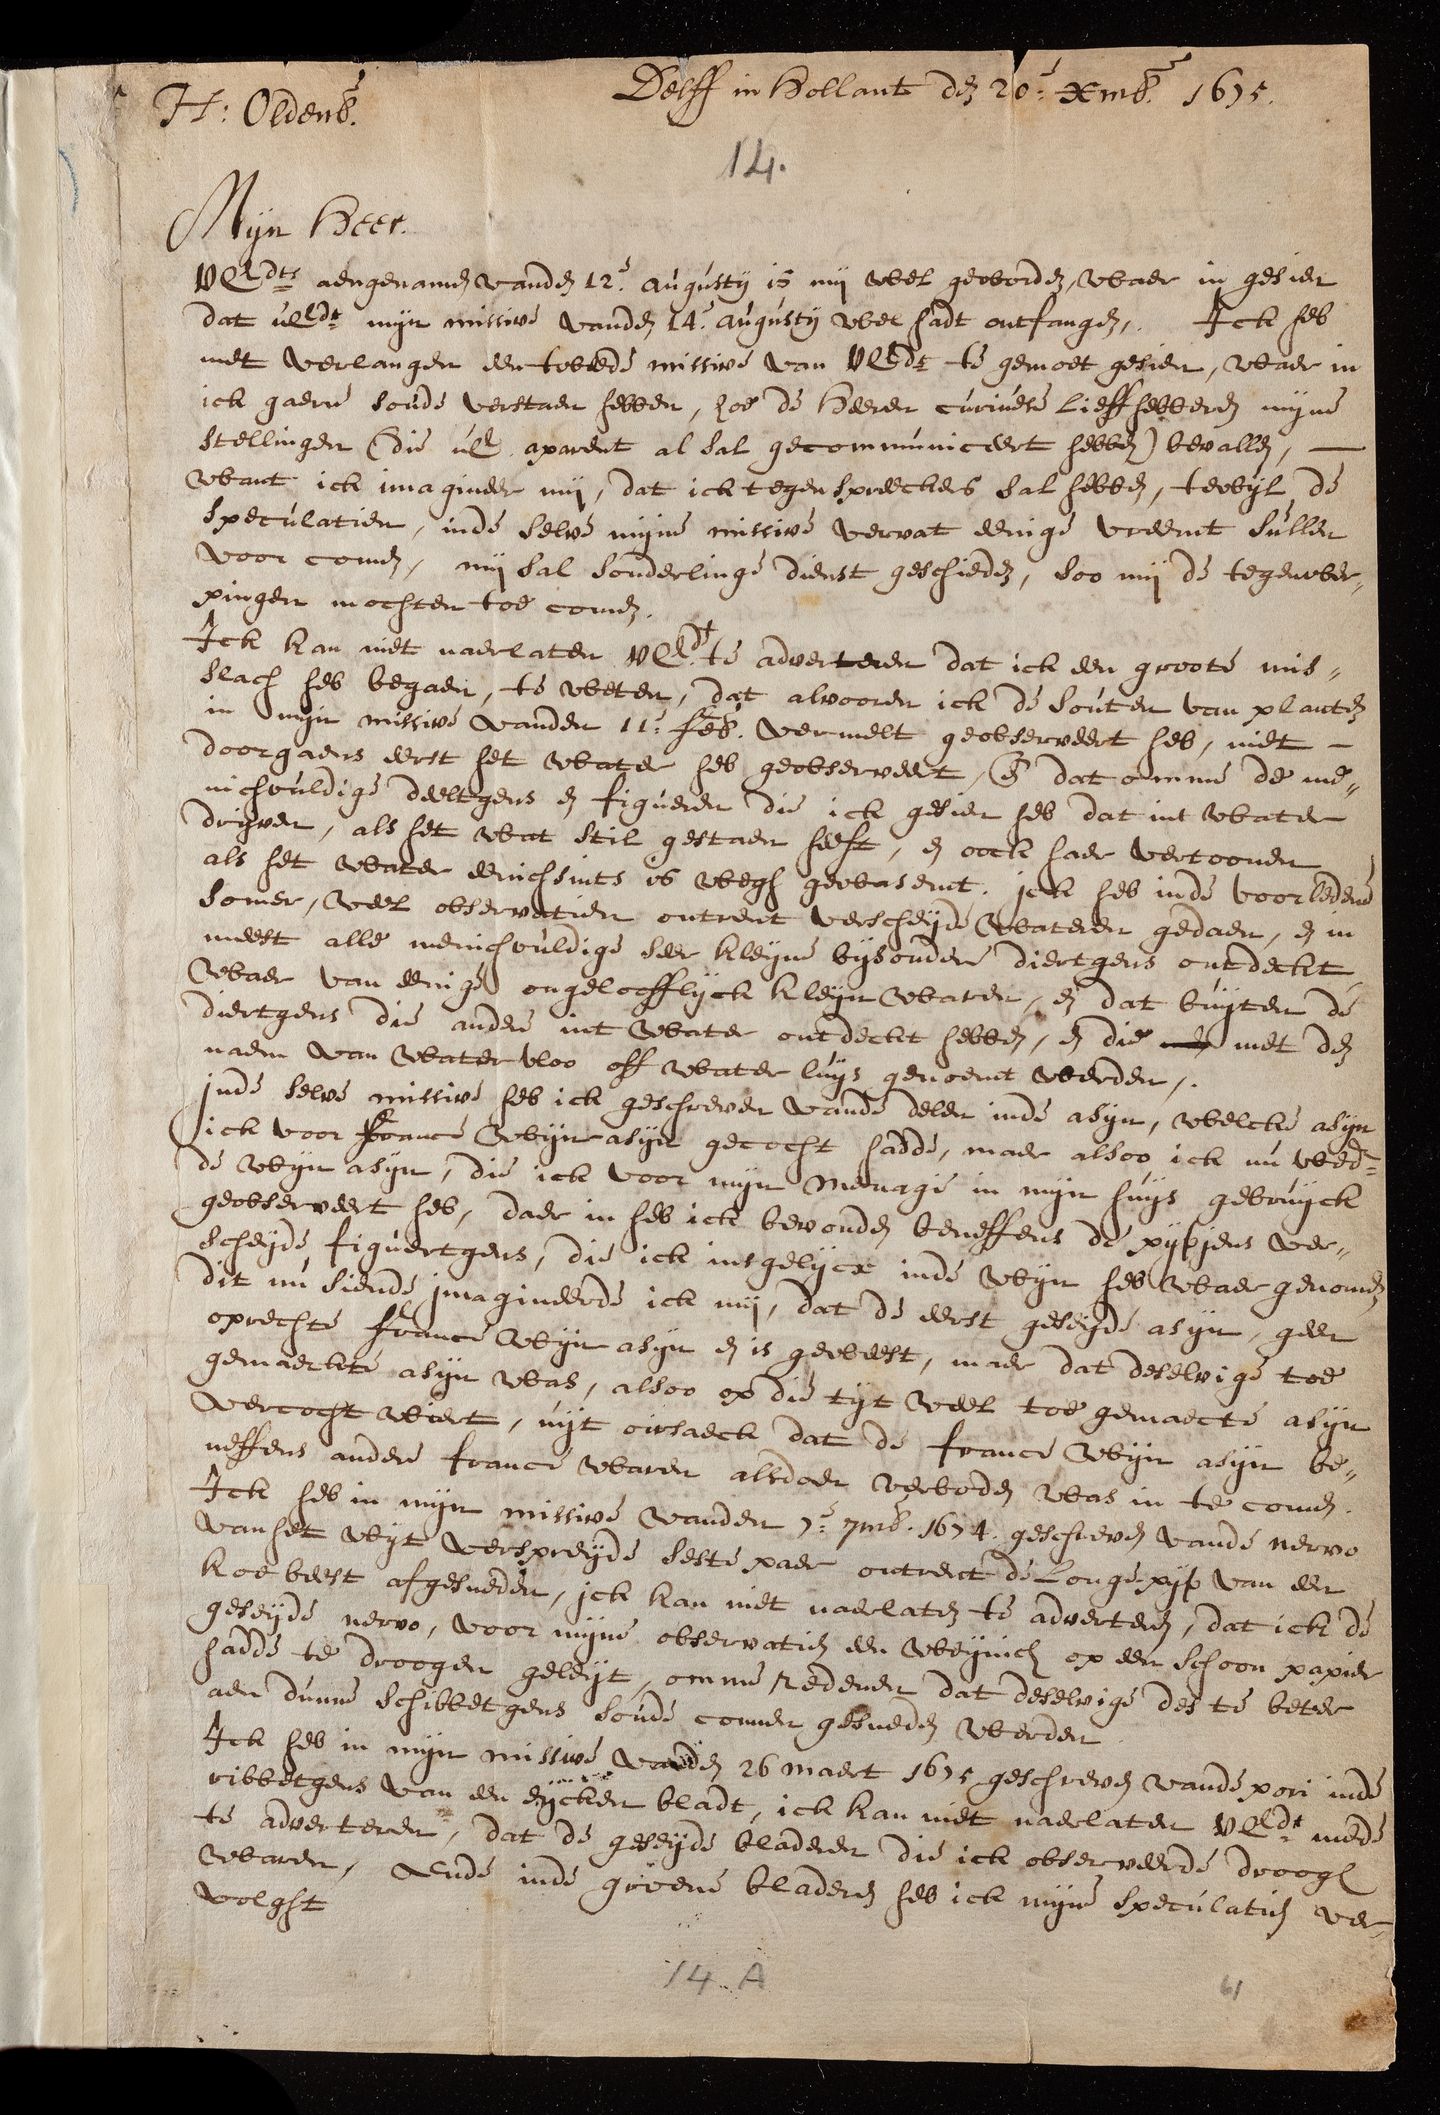 H: Oldenb.
Delff in Hollant den 20e. Xmb. 1675.
14.
Mijn Heer.
UEdts aengenamen vanden 12e. augustij is mij wel geworden, waer in gesien
dat uEdt mijn missive vanden 14e. augustij wel hadt ontfangen,. Ick heb
met verlangen een tweede missive van UEdt te gemoet gesien, waer in
ick gaerne soude verstaen hebben, hoe de Heeren curieuse Lieffhebberen mijne
stellingen (die uE. aparent al sal gecommuniceert hebben) bevallen, —
want ick imagineer mij, dat ick tegensprekers sal hebben, terwijl de
speculatien, inde selve mijne missive vervat eenige vreemt sullen
voor comen, mij sal sonderlinge dienst geschieden, soo mij de tegenwer„
pingen mochten toe comen.
Ick kan niet naerlaten UEdt. te adverteren dat ick een groote mis„
slach heb begaen, te weten, dat alvooren ick de souten van planten
in mijn missive vanden 11e. feb. vermelt geobserveert heb, niet –
doorgaens eerst het water heb geobserveert, en dat omme de me„
nichvuldige deeltgens en figueren die ick gesien heb dat int water
drijven, als het wat stil gestaen heeft, en oock haer vertoonen
als het water eenichsints is wegh gewasemt. jck heb inde voorledene
somer, veel observatien ontrent verscheyde wateren gedaen, en in
meest alle menichvuldige seer kleyne bysondere diertgens ontdeckt
waer van eenige ongelooflijck kleyn waren, en dat buyten de
diertgens die andere int water ontdeckt hebben, en die met den
naem van water vloo off water luys genoemt werden,.
jnde selve missive heb ick geschreven vande delen inde asijn, welcke asijn
ick voor france wijn asijn gecocht hadde, maer alsoo ick nu wed„
de wijn asijn, die ick voor mijn menage in mijn huys gebruyck
geobserveert heb, daer in heb ick bevonden beneffens de pijpjens ver„
scheyde figuertgens, die ick insgelijcx inde wijn heb waer genomen
dit nu siende jmagineerde ick mij, dat de eerst geseyde asijn, geen
oprechte france wijn asijn en is geweest, maer dat deselvige toe
gemaeckte asijn was, alsoo op die tijt veel toe gemaecte asijn
vercocht wiert, uijt oirsaeck dat de france wijn asijn be„
neffens andere france waren alsdoen verboden was in te comen.
Ick heb in mijn missive vanden 7e. 7mb. 1674. geschreven vande nervo
vanhet wijt verspreyde seste paer ontrent de Longe-pijp van een
koebeest afgesneden, jck kan niet naerlaten te adverteren, dat ick de
geseyde nervo, voor mijne observatien een weynich op een schoon papier
hadde te droogen geleyt, omme redenen dat deselvige des te beter
aen dunne schibbetgens soude connen gesneden werden
Ick heb in mijn missive vanden 26 maert 1675 geschreven vande pori inde
ribbetgens van een eycken bladt, ick kan niet naerlaten UEdt mede
te adverteren, dat de geseyde bladeren die ick observeerde droogh
waren, Ende inde groene bladeren heb ick mijne speculatien ver„
volght
14. A
61